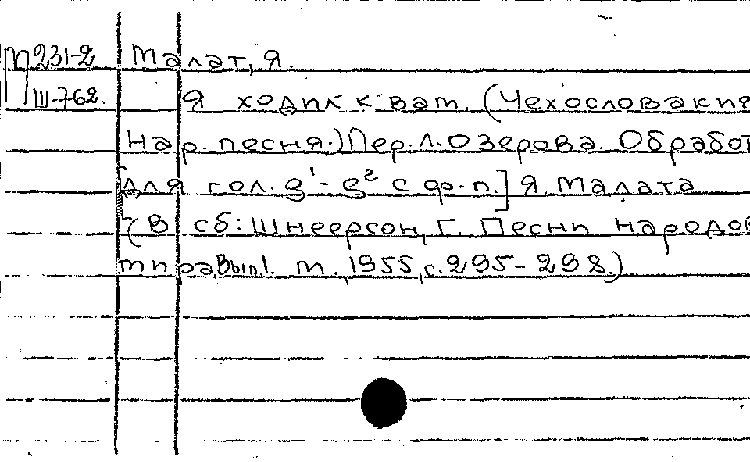 М 231-2 Малат, Я.
III-762. Я ходил к вам. (Чехословакия
Нар. песня.) Пер. Л. Озерова Обработ
[для гол. g¹-g² с ф-п.] Я. Малата
(В сб: Шнеерсон, Г. Песни народов
мира, Вып. 1. М., 1955, с. 295-298.)